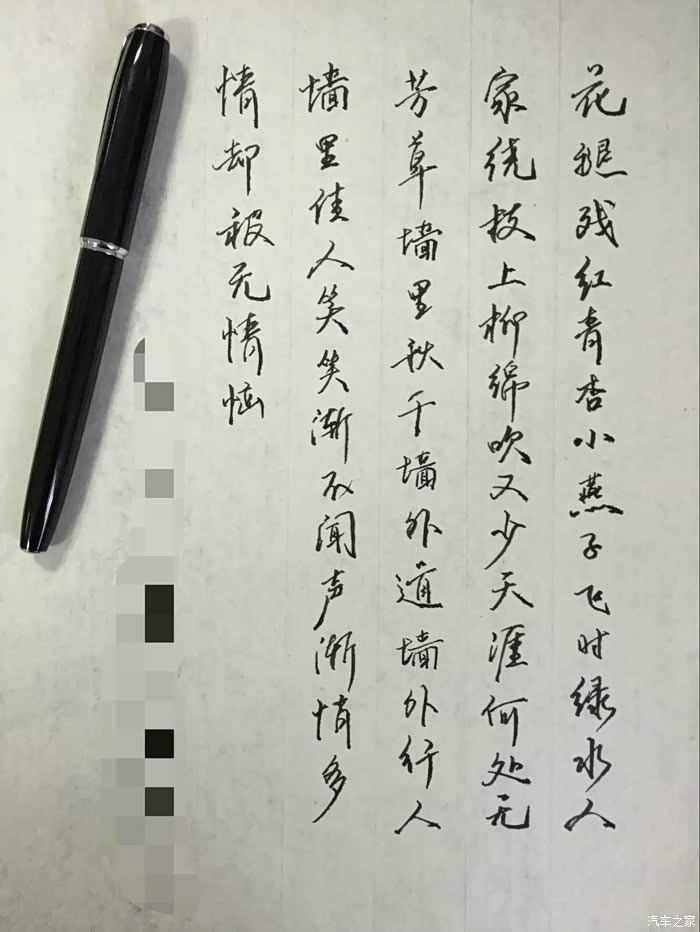 花褪残红青杏小燕子飞时绿水人
家绕枝上柳绵吹又少天涯何处无
芳草墙里秋千墙外道墙外行人
墙里佳人笑笑渐不闻声渐悄多
情却被无情恼
汽车之家